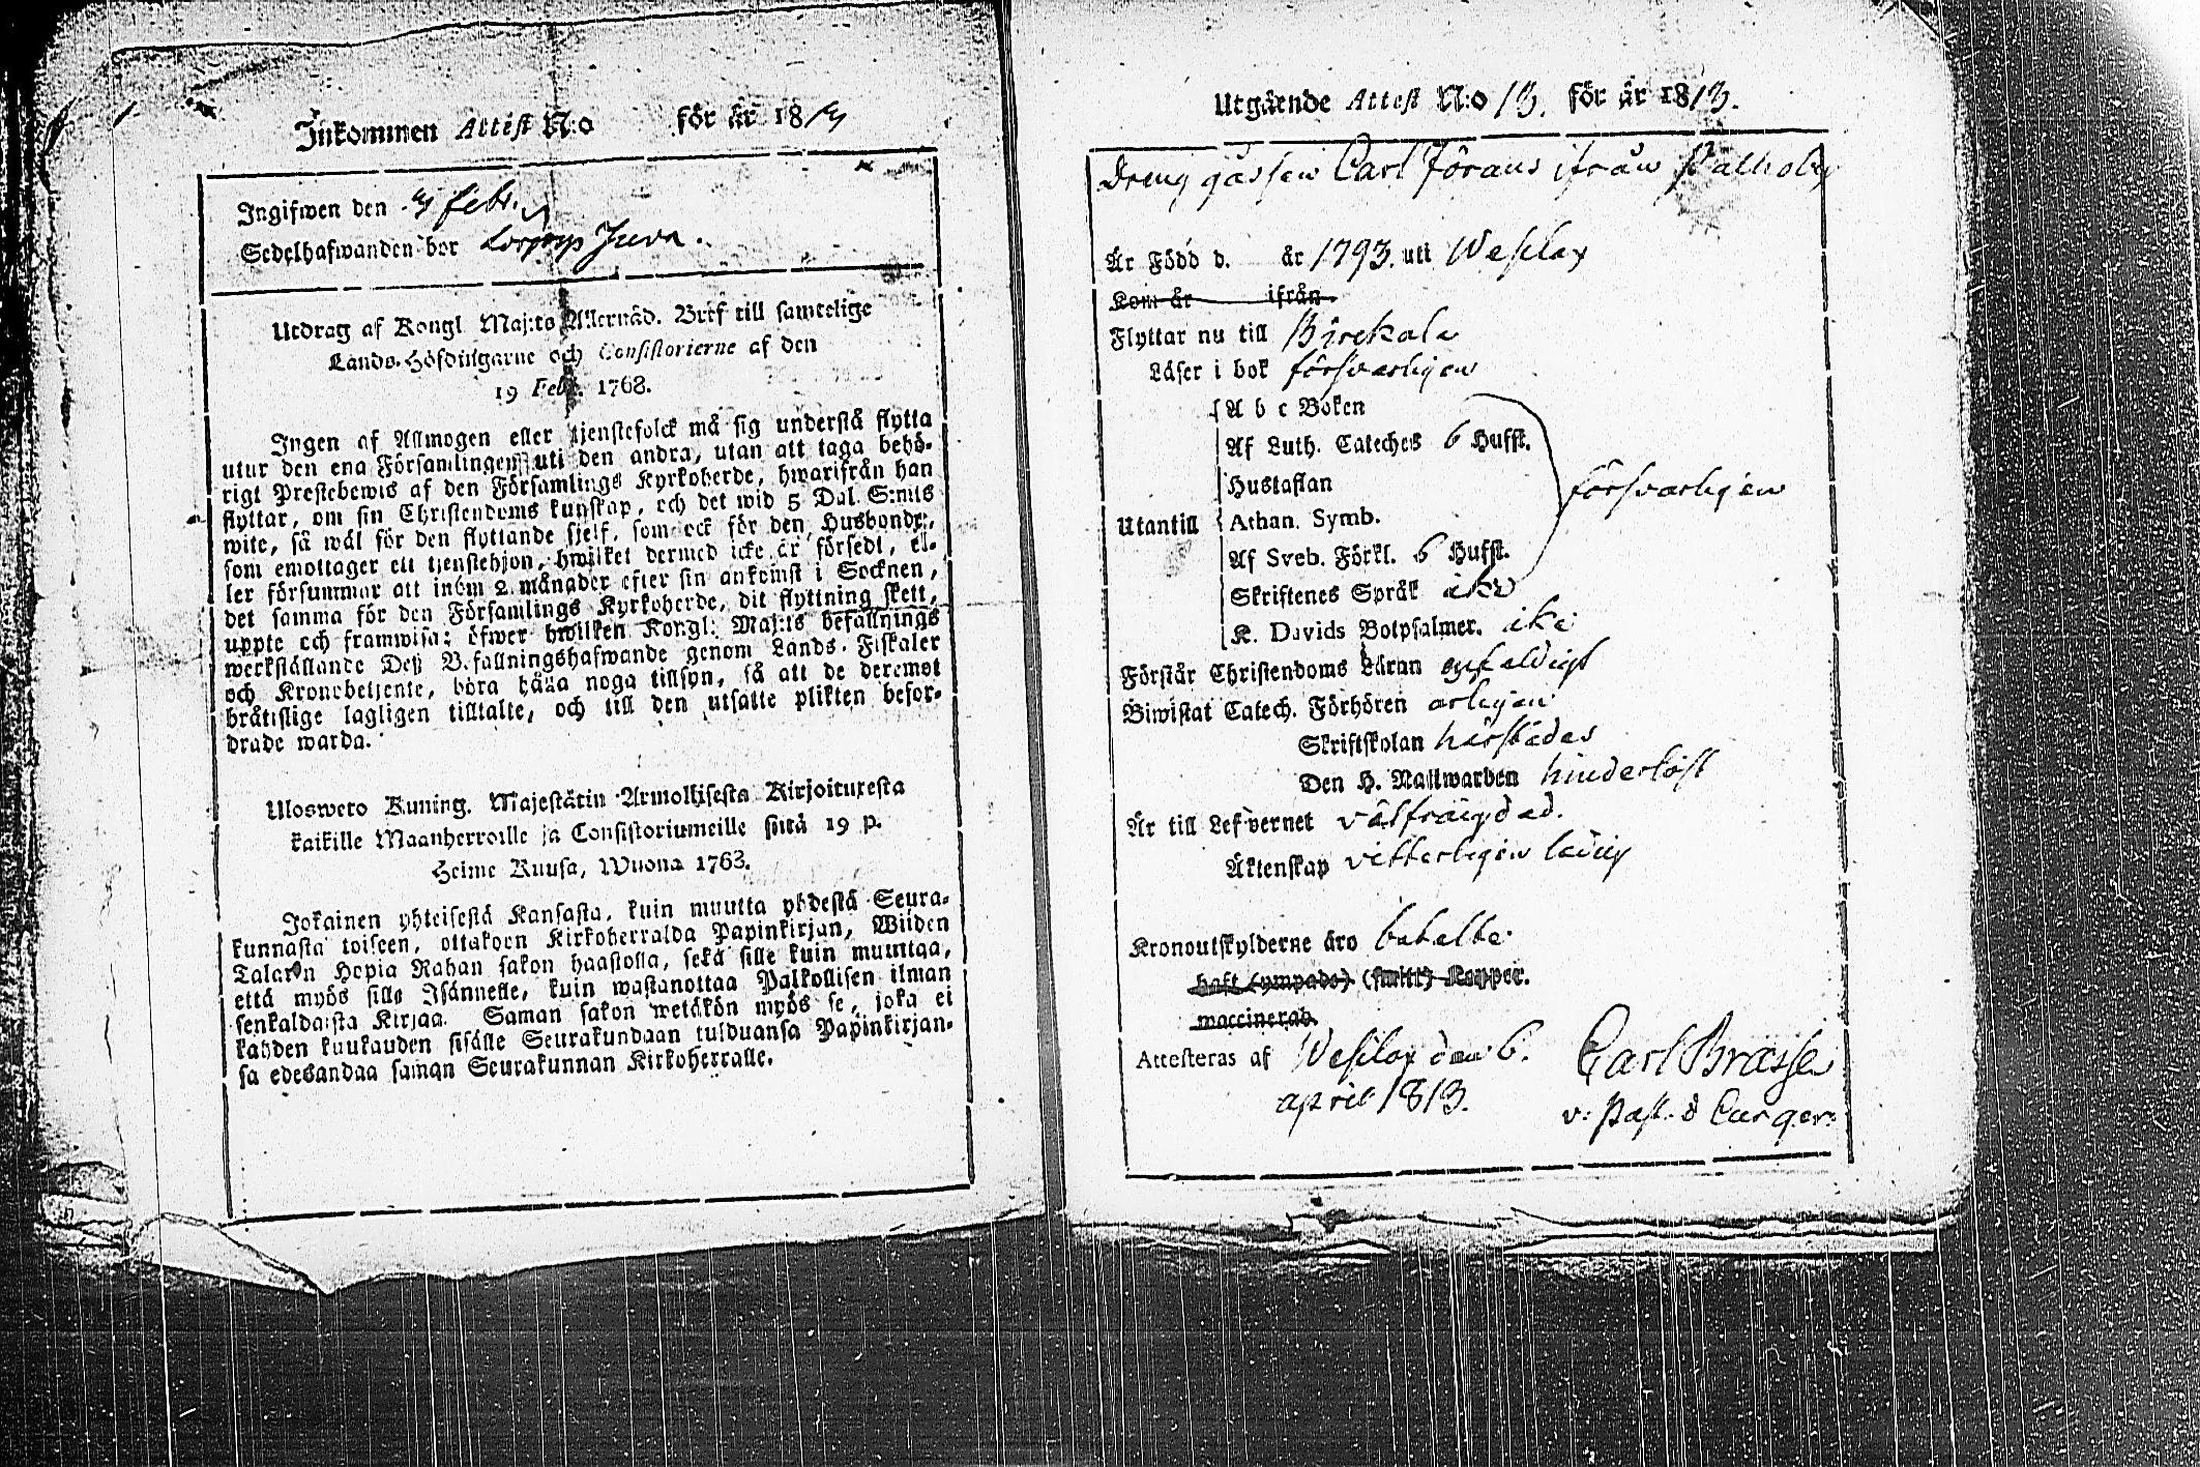 Inkommen Attest N:o för år 1814
Ingifwen den 4 febr.
Sedelhafwanden bor Juva.
Utdrag af Kongl Maj:ts Allernåd. Bref till samtelige
Lands-Höfdingarne och Consistorierne af den
19 Febr. 1768.
Ingen af Allmogen eller tjenstefolck må sig understå flytta
utur den ena Församlingen uti den andra, utan att taga behö-
rigt Prestebewis af den Församlings Kyrkoherde, hwarifrån han
flyttar, om sin Christendoms kunskap, och det wid 5 Dal. S:mts
wite, så wäl för den flyttande sjelf, som ock för den Husbonde,
som emottager ett tjenstehjon, hwilket dermed icke är försedt, el-
ler försummar att inom 2 månader efter sin ankomst i Socknen,
det samma för den Församlings Kyrkoherde, dit flyttning skett,
uppte och framwisa; öfwer hwilken Kongl: Maj:ts befallnings
werkställande Deß B.fallningshafwande genom Lands-Fiskaler
och Kronobetjente, böra hålla noga tillsyn, så att de deremot
bråtislige lagligen tilltalte, och till den utsatte plikten befor-
drade warda.
Ulosweto Kuning. Majestätin Armollisesta Kirjoituxesta
kaikille Maanherroille ja Consistoriumeille siitä 19 p.
Helme Kuusa, Wuona 1763.
Jokainen yhteisestä Kansasta, kuin muutta yhdestä Seura-
kunnasta toiseen, ottakoen Kirkoherralda Papinkirjan, Wiiden
Talarin Hopia Rahan sakon haastolla, sekä sille kuin muuttaa,
että myös sille Isännelle, kuin wastanottaa Palkollisen ilman
senkaldaista Kirjaa. Saman sakon wetäkön myös se, joka ei
kahden kuukauden sisälle Seurakundaan tulduansa Papinkirjan-
sa edesandaa saman Seurakunnan Kirkoherralle.
Utgående Attest N:o 13. för år 1813.
Dreng gåssen Carl Jörans ifrån
Är Född d. år 1793. uti Wesilax
Kom år ifrån
Flyttar nu till Birckala
Läser i bok försvarligen
A b c Boken
Af Luth. Cateches 6 Hufst.
Hustaflan
försvarligen
Utantill Athan. Symb.
Af Sveb. Förkl. 6 Hufst.
Skriftenes Språk ike
K. Davids Botpsalmer. ike
Förstår Christendoms Läran enfaldigt
Biwistat Catech. Förhören arligen
Skriftskolan härstädes
Den H. Nattwarden hinderlöst
Är till Lefvernet välfräigdad.
Äktenskap vitterligen ledig
Kronoutskylderne äro betalte.
haft (ympade) (smitt) Kopper.
waccinerad
Attesteras af Wesilax den 6. Carl Brasse
april 1813. v: Past. &